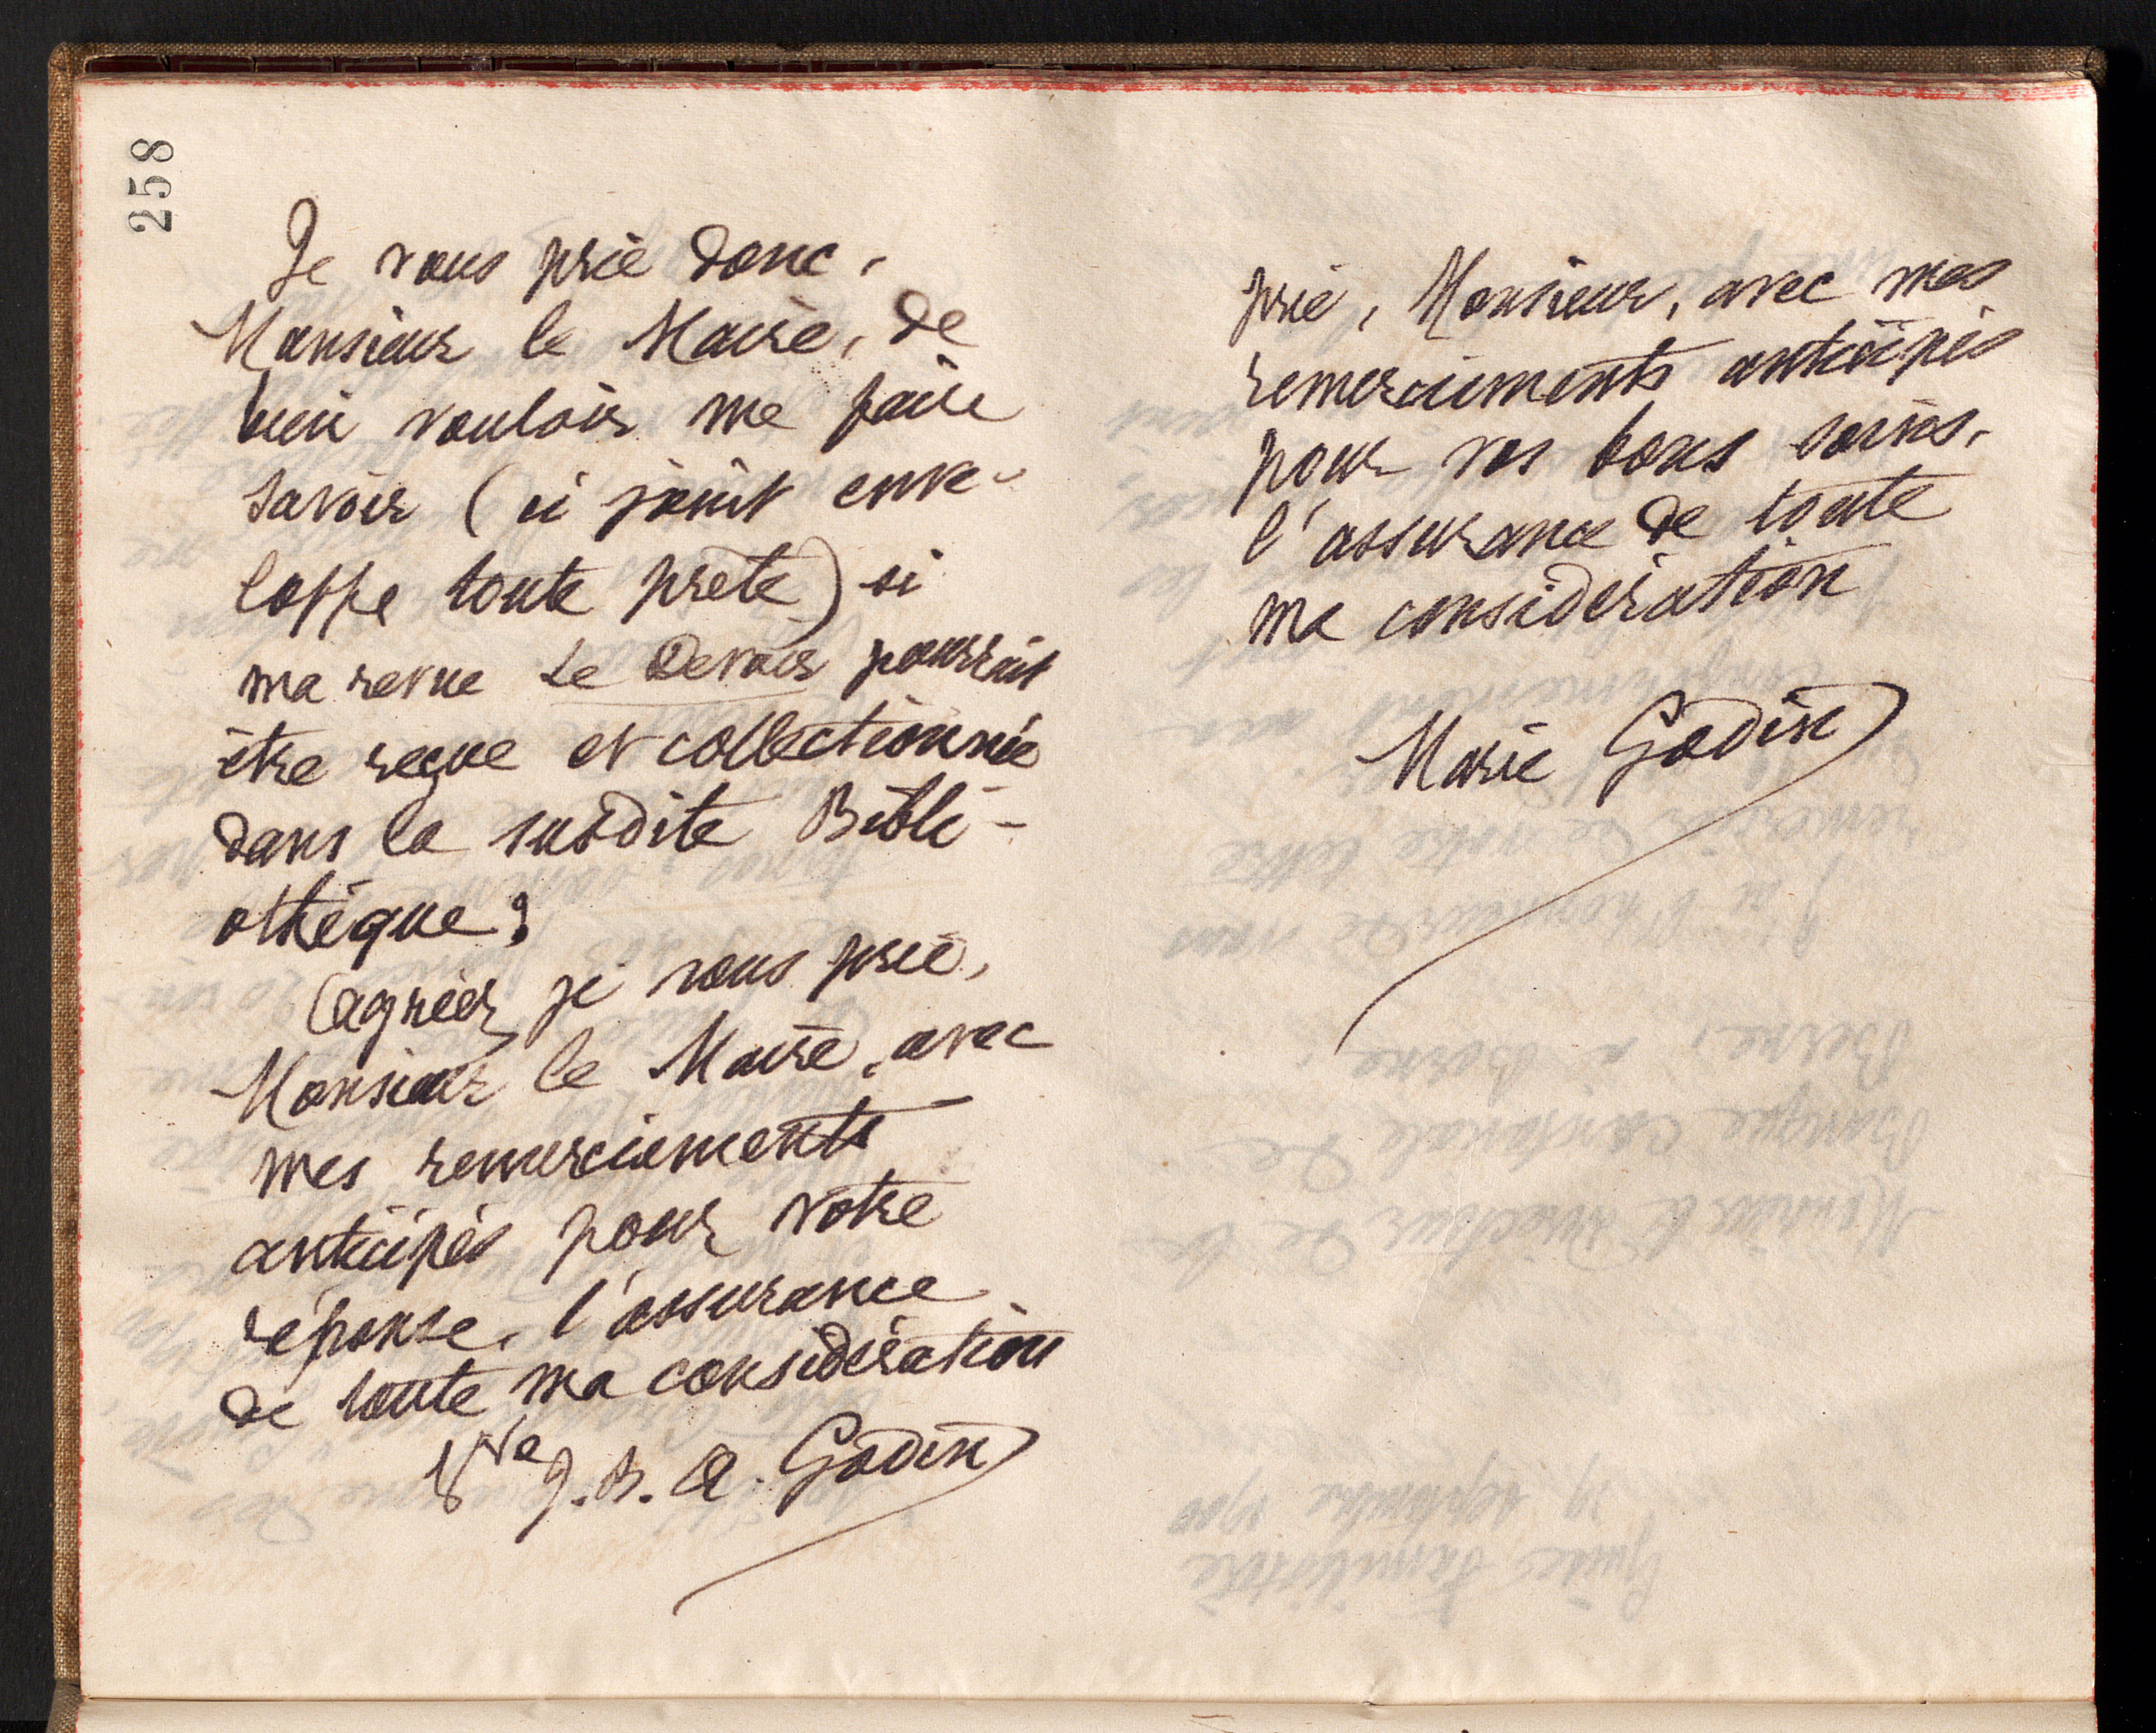 258
Je vous prie donc,
Monsieur le Maire, de
bien vouloir me faire
savoir (ci joint enve-
loppe toute prête) si
ma revue Le Devoir pourrait
être reçue et collectionnée
dans la susdite Bibli-
othèque ?
Agréez, je vous prie,
Monsieur le Maire, avec
mes remerciements
anticipés pour votre
réponse, l'assurance
de toute ma considération
Vve J. B. A. Godin
prie, Monsieur, avec mes
remerciements anticipés
pour vos bons soins,
l'assurance de toute
ma considération
Marie Godin